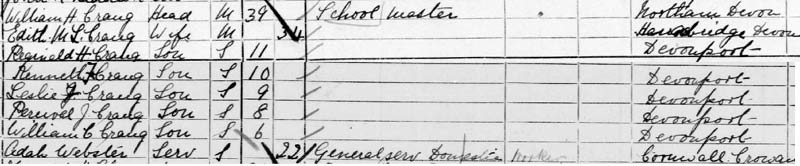 William H. Crang Head M 39 School Master Northam Devon
Edith M. S. Crang Wife M 34 Devon
Reginald H Crang Son S 11 Devonport
Kenneth F Crang Son S 10 Devonport
Leslie J Crang Son S 9 Devonport
Percival J Crang Son S 8 Devonport
William C Crang Son S 6 Devonport
Adah Webster Serv S 22 General serv Domestic Cornwall Crowan